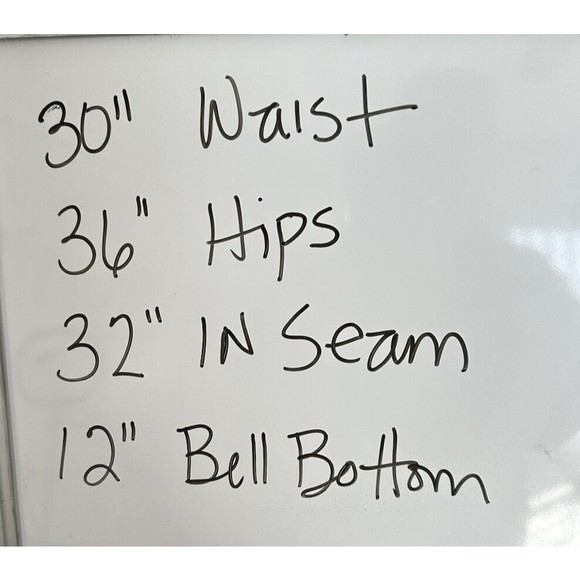 30" Waist
36" Hips
32" IN Seam
12" Bell Bottom